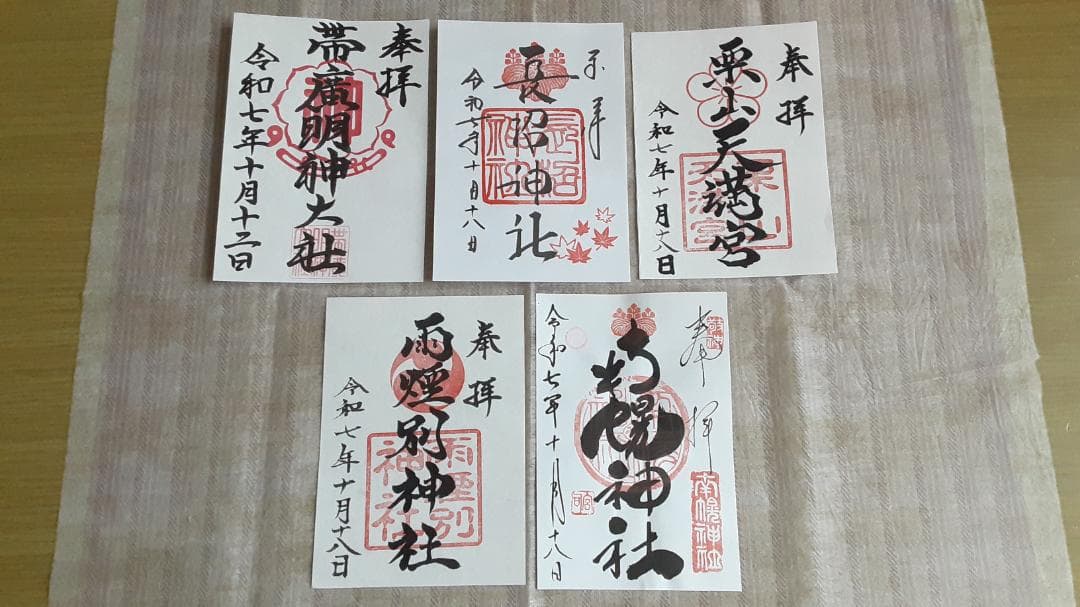 奉拝
帯廣明神大社
令和七年十月十二日
奉拝
長沼神社
長沼神社
令和七年十月十八日
奉拝
栗山天満宮
栗山天満宮
令和七年十月十八日
奉拝
雨煙別神社
雨煙別神社
令和七年十月十八日
奉拝
南幌神社
南幌神社
令和七年十月十八日